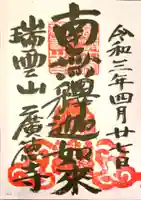 令和三年四月廿七日
南無釋迦如来
瑞雲山 廣徳寺